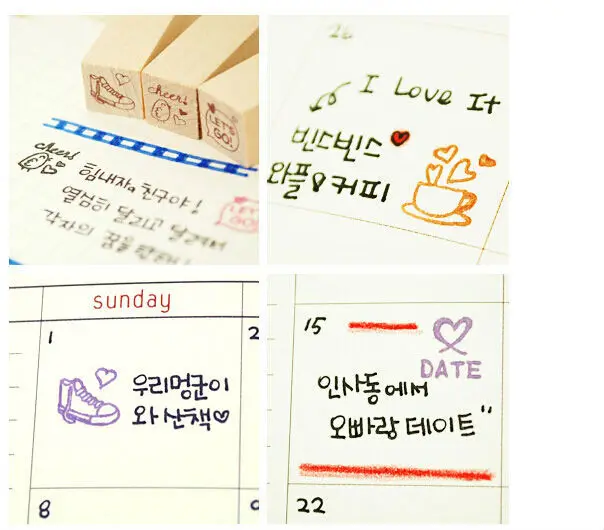 cheers
LET'S
GO!
cheers
힘내자 친구야!
열심히 달리고 달려서
각자의 꿈을
26
I Love It
빈스빈스
와플 & 커피
sunday
1
2
우리멍군이
와 산책
8
15
DATE
인사동에서
오빠랑 데이트"
22